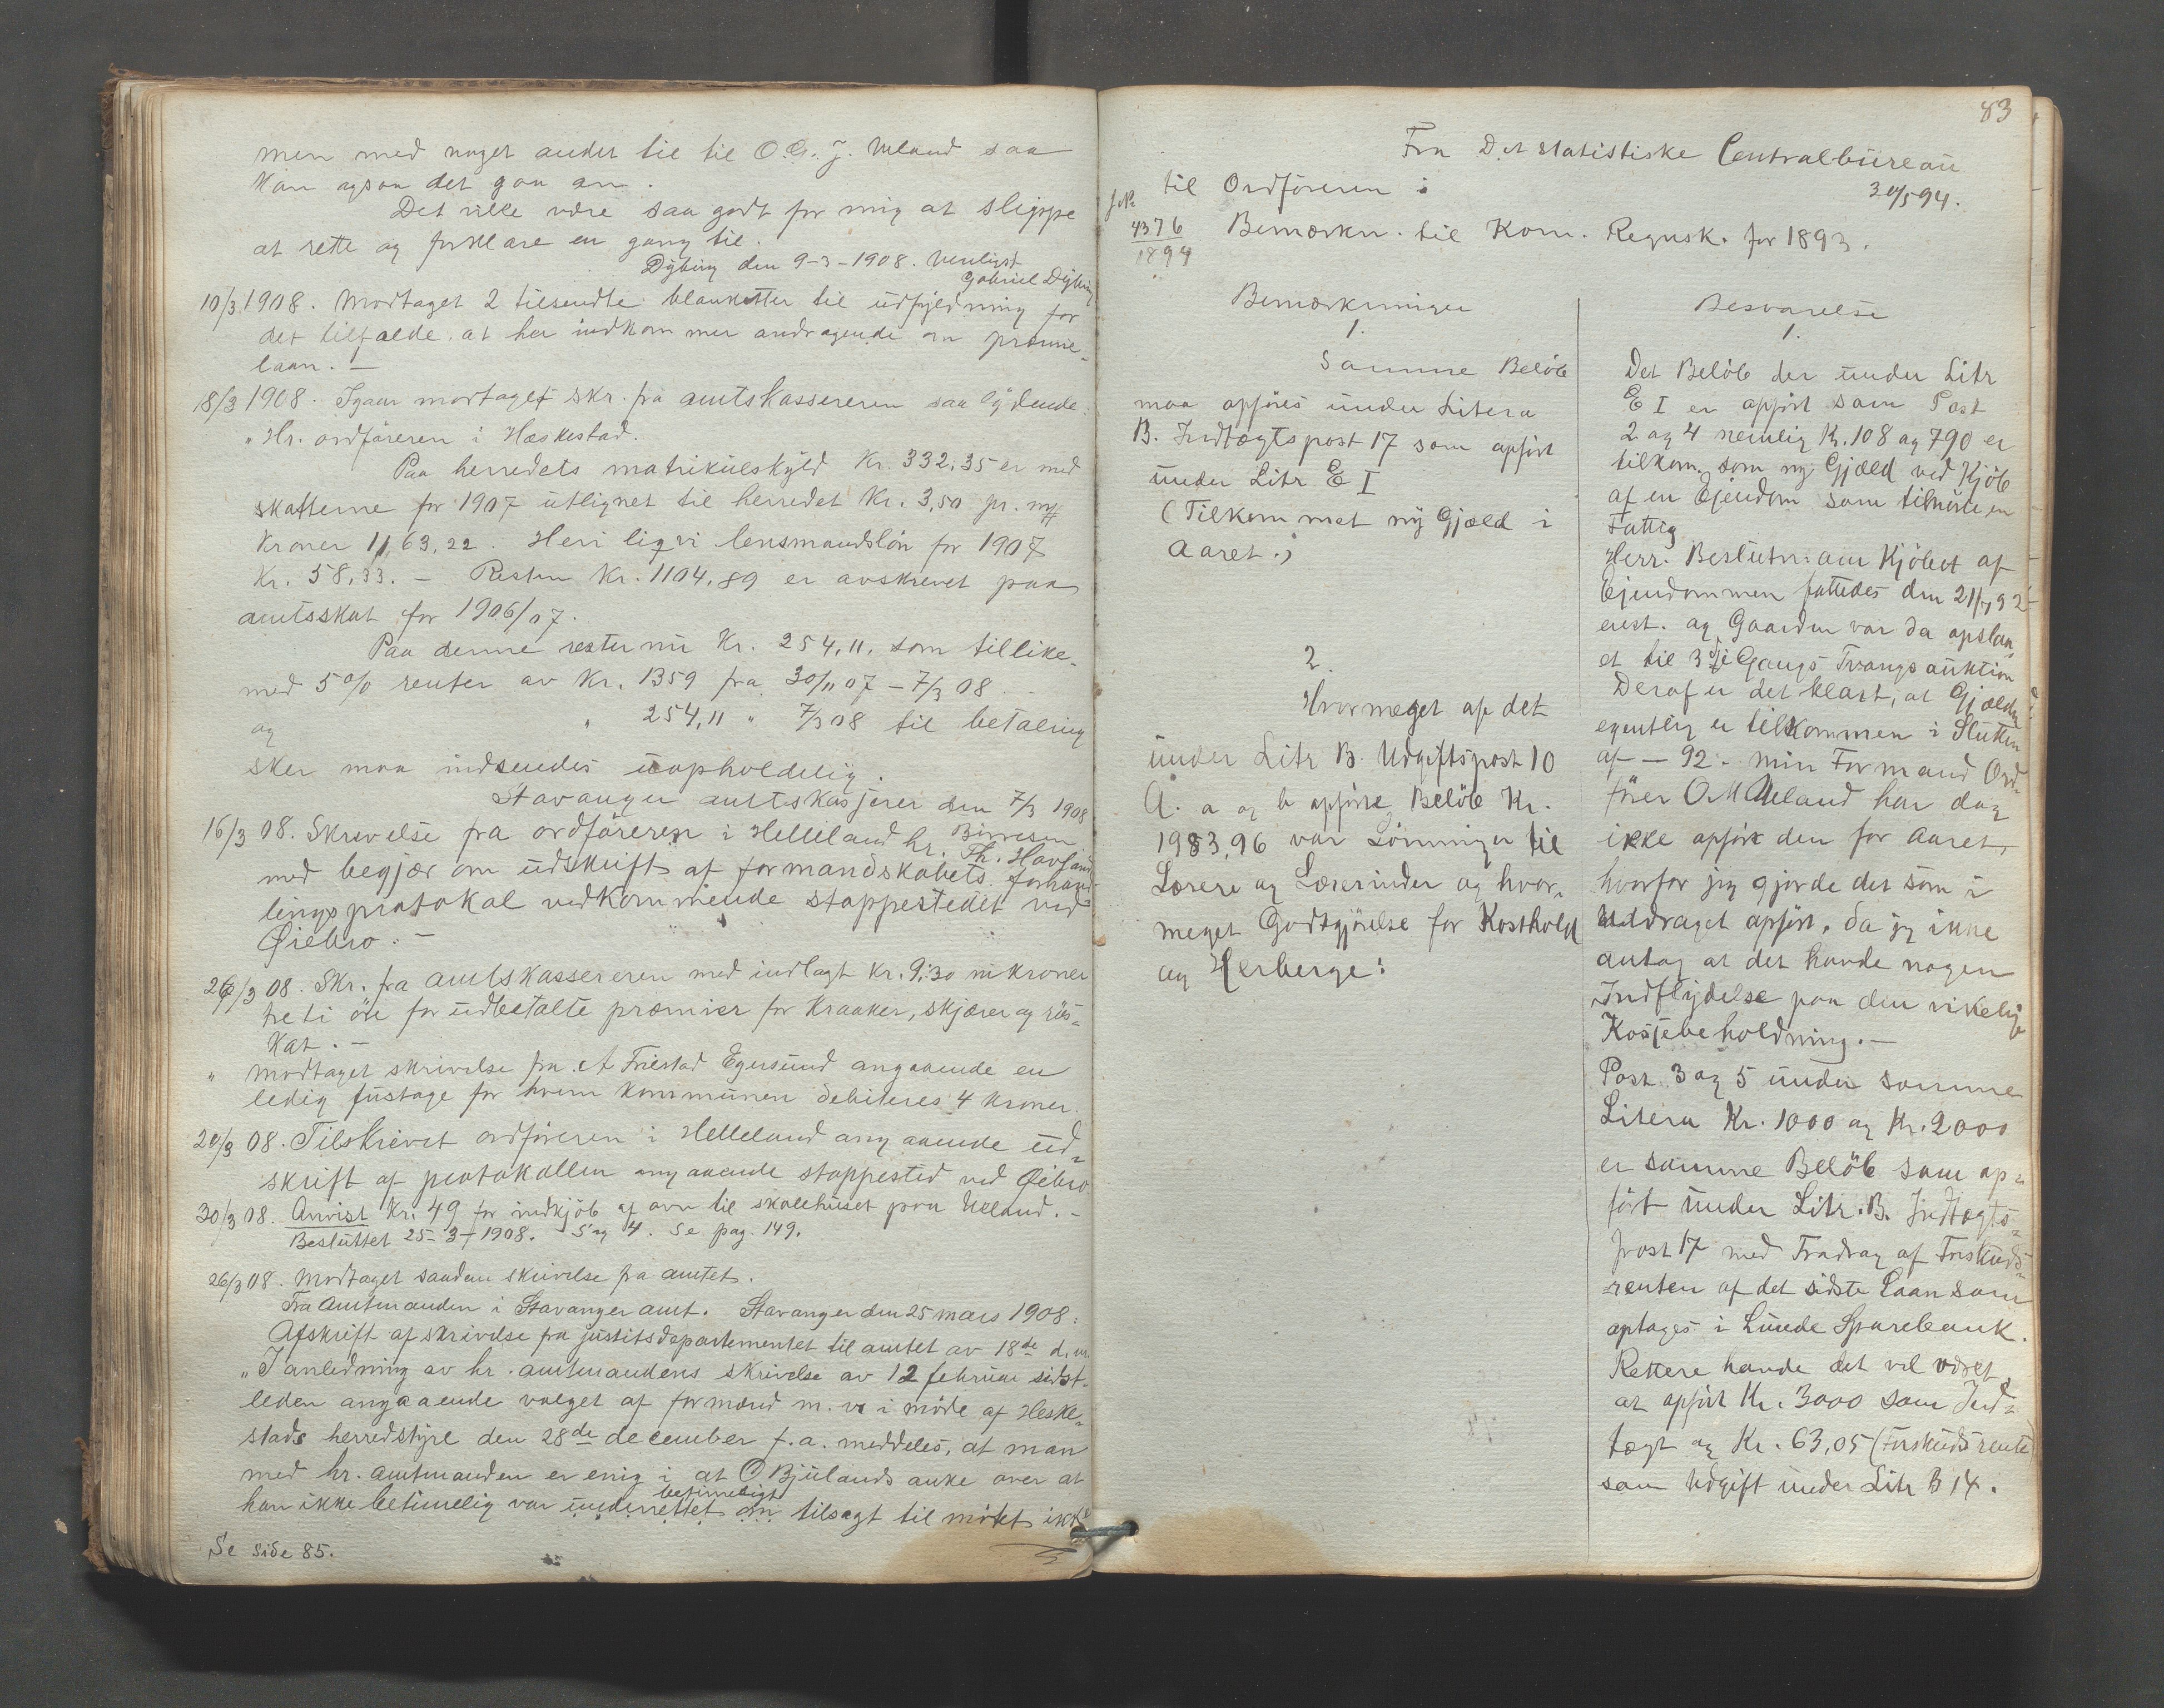 men med noget andet til til O.G.J. Ueland saa
kan ogsaa det gaa an.
Det vilde være saa godt for mig at slippe
at rette og forklare en gang til.
Dybing den 9-3-1908. Venligst
Gabriel Dybing
10/3 1908. Modtaget 2 tilsendte blanketter til udfyldning for
det tilfælde, at her indkommer andragende om præmie-
laan. —
18/3 1908. Igaar mortaget skr. fra amtskassereren saa lydende:
"Hr. ordføreren i Heskestad.
Paa herredets matrikulskyld Kr. 332,35 er med
skatterne for 1907 utlignet til herredet Kr. 3,50 pr. mk
Kroner 1163,22. Heri ligger lensmandsløn for 1907
Kr. 58,33. — Resten Kr. 1104,89 er avskrevet paa
amtsskat for 1906/07.
Paa denne rester nu Kr. 254,11, som tillike-
med 5 % renter av Kr. 1359 fra 30/11 07 - 7/3 08
og " 254,11 " 7/3 08 til betaling
sker maa indsendes uopholdelig.
Stavanger amtskasserer den 7/3 1908
16/3 08. Skrivelse fra ordføreren i Helleland hr. Th. Havsand
med begjær om udskrift af formandskabets forhand-
lingsprotokol vedkommende stoppestedet ved
Øiebro. —
26/3 08. Skr. fra amtskassereren med indlagt kr. 9,30 ni kroner
treti øre for udbetalte præmier for Kraaker, skjærer og røs-
kat. —
" Modtaget skrivelse fra A Friestad Egersund angaaende en
ledig fustage for hvem kommunen debiteres 4 kroner.
20/3 08. Tilskrevet ordføreren i Helleland angaaende ud-
skrift af protokollen angaaende stoppested ved Øiebro
30/3 08. Anvist Kr. 49 for indkjøb af ovn til skolehuset paa Ueland. —
Besluttet 25-3-1908. Sag 4. Se pag. 149.
26/3 08. Modtaget saadan skrivelse fra amtet.
Fra Amtmanden i Stavanger amt. Stavanger den 25 mars 1908:
Afskrift af skrivelse fra justitsdepartementet til amtet av 18de d.m.
"I anledning av hr. amtmandens skrivelse av 12 februar sidst-
leden angaaende valget af formænd m. v. i møde af Heske-
stads herredstyre den 28de december f.a. meddeles, at man
med hr. amtmanden er enig i at O Bjulands anke over at
betimeligt
han ikke betimelig var underrettet om tilsagt til møtet ikke
Se side 85.
83
Fra Det statistiske Centralbüreau
30/5 94.
til Ordføreren i
JNo
4376
1894
Bemærkn. til Kom. Regnsk. for 1893.
Bemærkninger
1.
Samme Beløb
maa opføres under Litera
B. Indtægtspost 17 som opført
under Litr E I
(Tilkommet ny Gjæld i
Aaret.)
2.
Hvormeget af det
under Litr B. Udgiftspost 10
A. a og b opførte Beløb Kr.
1983,96 var Lønninger til
Lærere og Lærerinder og hvor-
meget Godtgjørelse for Kosthold
og Herberge:
Besvarelse
1.
Det Beløb der under Litr
E I er opført som Post
2 og 4 nemlig Kr. 108 og 790 er
tilkom. som ny Gjæld ved Kjøb
af en Ejendom som tilhørte en
Fattig
Herr. Beslutn: om Kjøbet af
Ejendommen fattedes den 21/7 92
og Gaarden var da opslaa-
et til 3die Gangs Tvangsauktion
Deraf er det klart, at Gjælden
egentlig er tilkommen i Slutten
af — 92. Min Formand Ord-
fører O M Ueland har dog
ikke opført den for Aaret,
hvorfor jeg gjorde det som i
Uddraget opført, da jeg ikke
antog at det havde nogen
Indflydelse paa den virkelige
Kassebeholdning. —
Post 3 og 5 under samme
Litera Kr. 1000 og Kr. 2000
er samme Beløb som op-
ført under Litr. B. Indtægts-
post 17 med Fradrag af Forskuds-
renten af det sidste Laan som
optoges i Lunde Sparebank.
Rettere havde det vel været
at opført Kr. 3000 som Ind-
tægt og Kr. 63,05 (Forskudsrente)
som Udgift under Litr B 14.